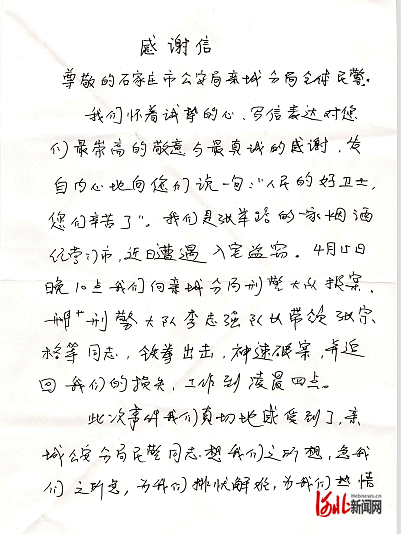 感谢信
尊敬的石家庄市公安局栾城分局全体民警:
我们怀着诚挚的心、写信表达对您
们最崇高的敬意与最真诚的感谢,发
自内心地向您们说一句:“人民的好卫士,
您们辛苦了”。我们是张举路的一家烟酒
经营门市,近日遭遇入室盗窃。4月15日
晚10点我们向栾城分局刑警大队报案,
刑警大队李志强队长带领张宗
格等同志,铁拳出击,神速破案,并追
回我们的损失,工作到凌晨四点。
此次事件我们真切地感受到了,栾
城公安分局民警同志想我们之所想,急我
们之所急,为我们排忧解难,为我们热情
河北新闻网
Hebnews.cn